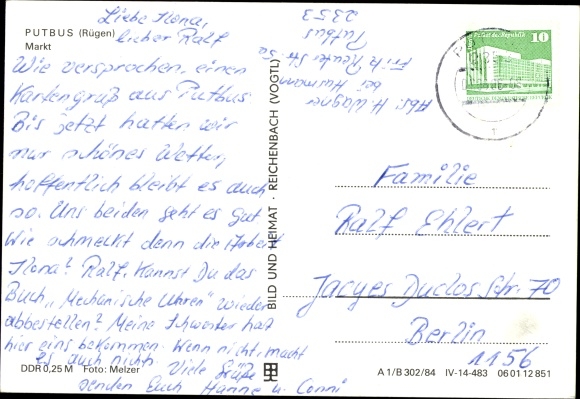 PUTBUS (Rügen)
Markt
Liebe Ilona,
lieber Ralf
Wie versprochen, einen
Kartengruß aus Putbus
Bis jetzt hatten wir
nur schönes Wetter,
hoffentlich bleibt es auch
so. Uns beiden geht es gut
Wie schmeckt denn die Arbeit
Ilona? Ralf, Kannst Du das
Buch „Mechanische Uhren" wieder
abbestellen? Meine Schwester hat
hier eins bekommen. Wenn nicht, macht
es auch nichts. Viele Grüße
senden Euch Hanne u. Conni
DDR 0,25 M Foto: Melzer
Abs. H. Wagner
bei
Fritz Reuter Str. 5a
Putbus
2353
BILD UND HEIMAT · REICHENBACH (VOGTL)
Palast der Republik
10
DDR
Familie
Ralf Ehlert
Jacques Duclos Str. 70
Berlin
1156
A 1/B 302/84 IV-14-483 06 01 12 851